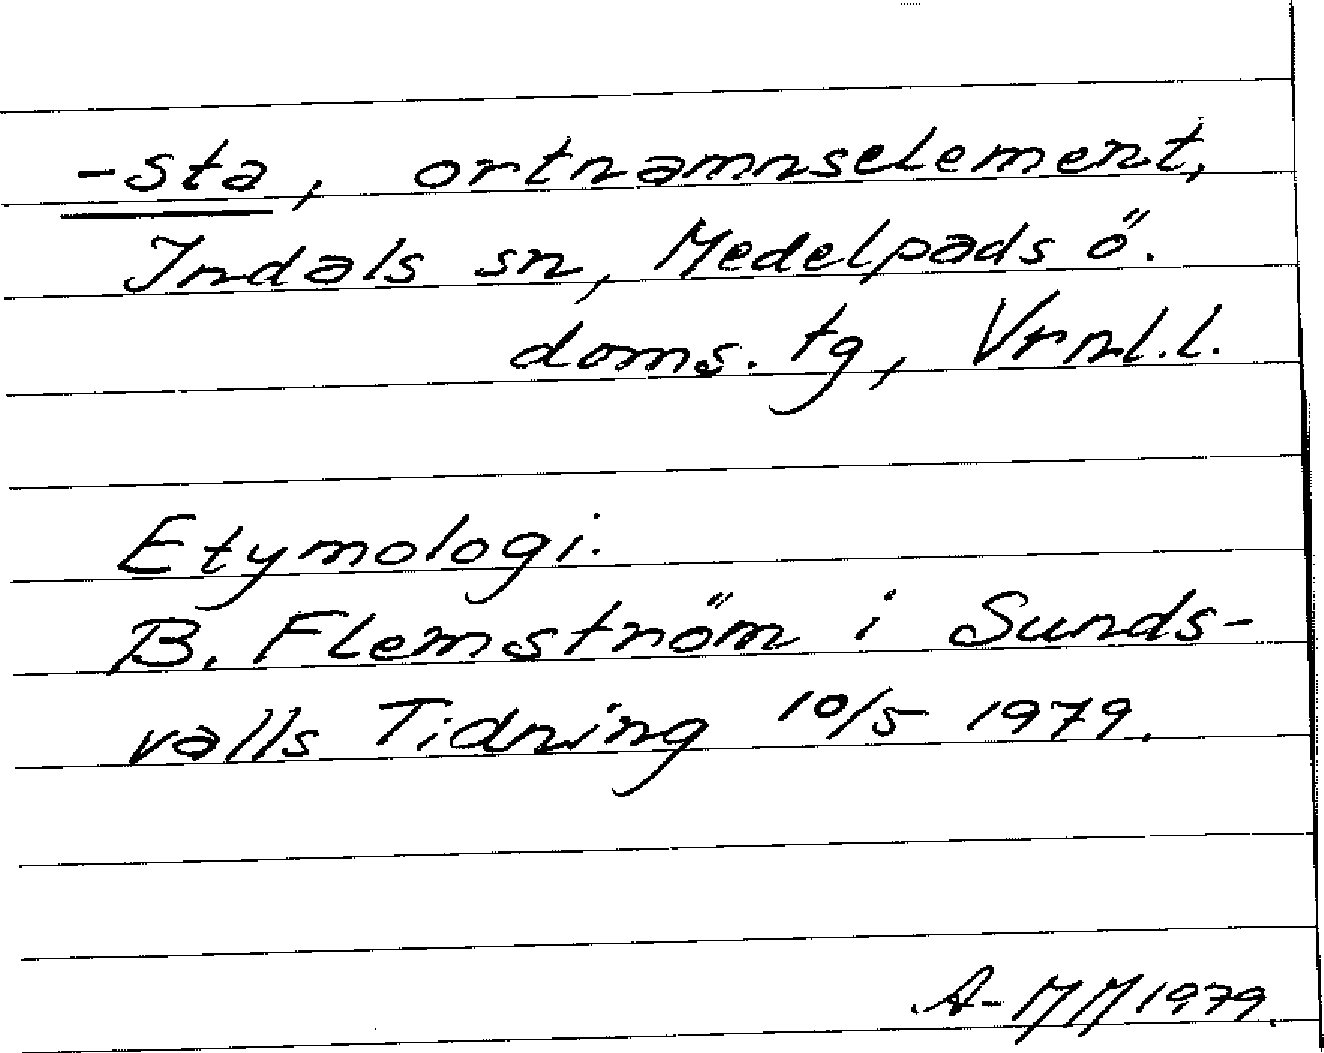 -sta, ortnamnselement,
Indals sn, Medelpads ö.
doms. tg, Vrnl.l.
Etymologi.
B. Flemström i Sunds-
valls Tidning 10/5 1979.
A-MM 1979.